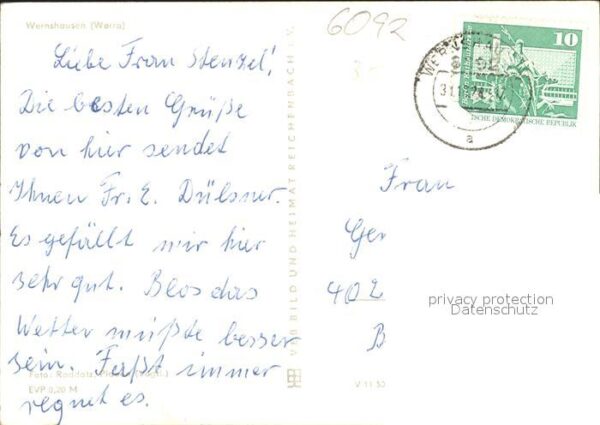 Wernshausen (Werra)
Liebe Frau Stenzel!
Die besten Grüße
von hier sendet
Ihnen Fr. E. Dülsner.
Es gefällt mir hier
sehr gut. Blos das
Wetter müßte besser
sein. Faßt immer
regnet es.
Foto: Raddatz,
EVP 0,20 M
VEB BILD UND HEIMAT REICHENBACH i. V.
V 11 50
6092
10
DEMOKRATISCHE REPUBLIK
a
Frau
Ger
402
B
privacy protection
Datenschutz